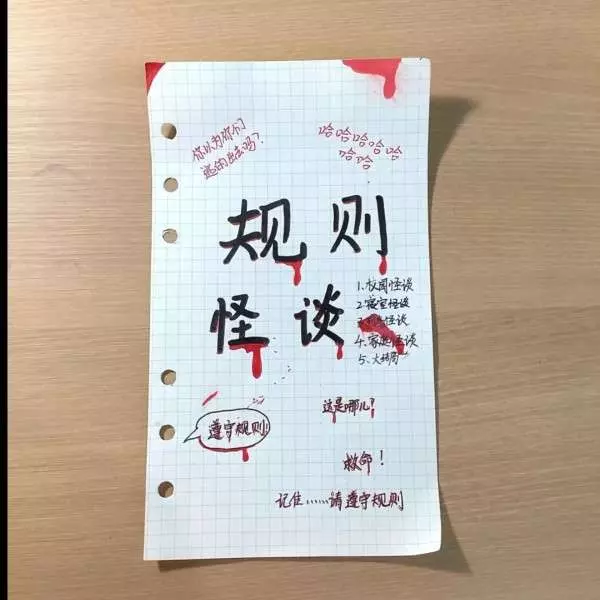 你以为你们
逃的出去吗?
哈哈哈哈哈
哈哈
规则
怪谈
1.校园怪谈
2.寝室怪谈
3.怪谈
4.家庭怪谈
5.大结局
这是哪儿?
遵守规则!
救命!
记住......请遵守规则